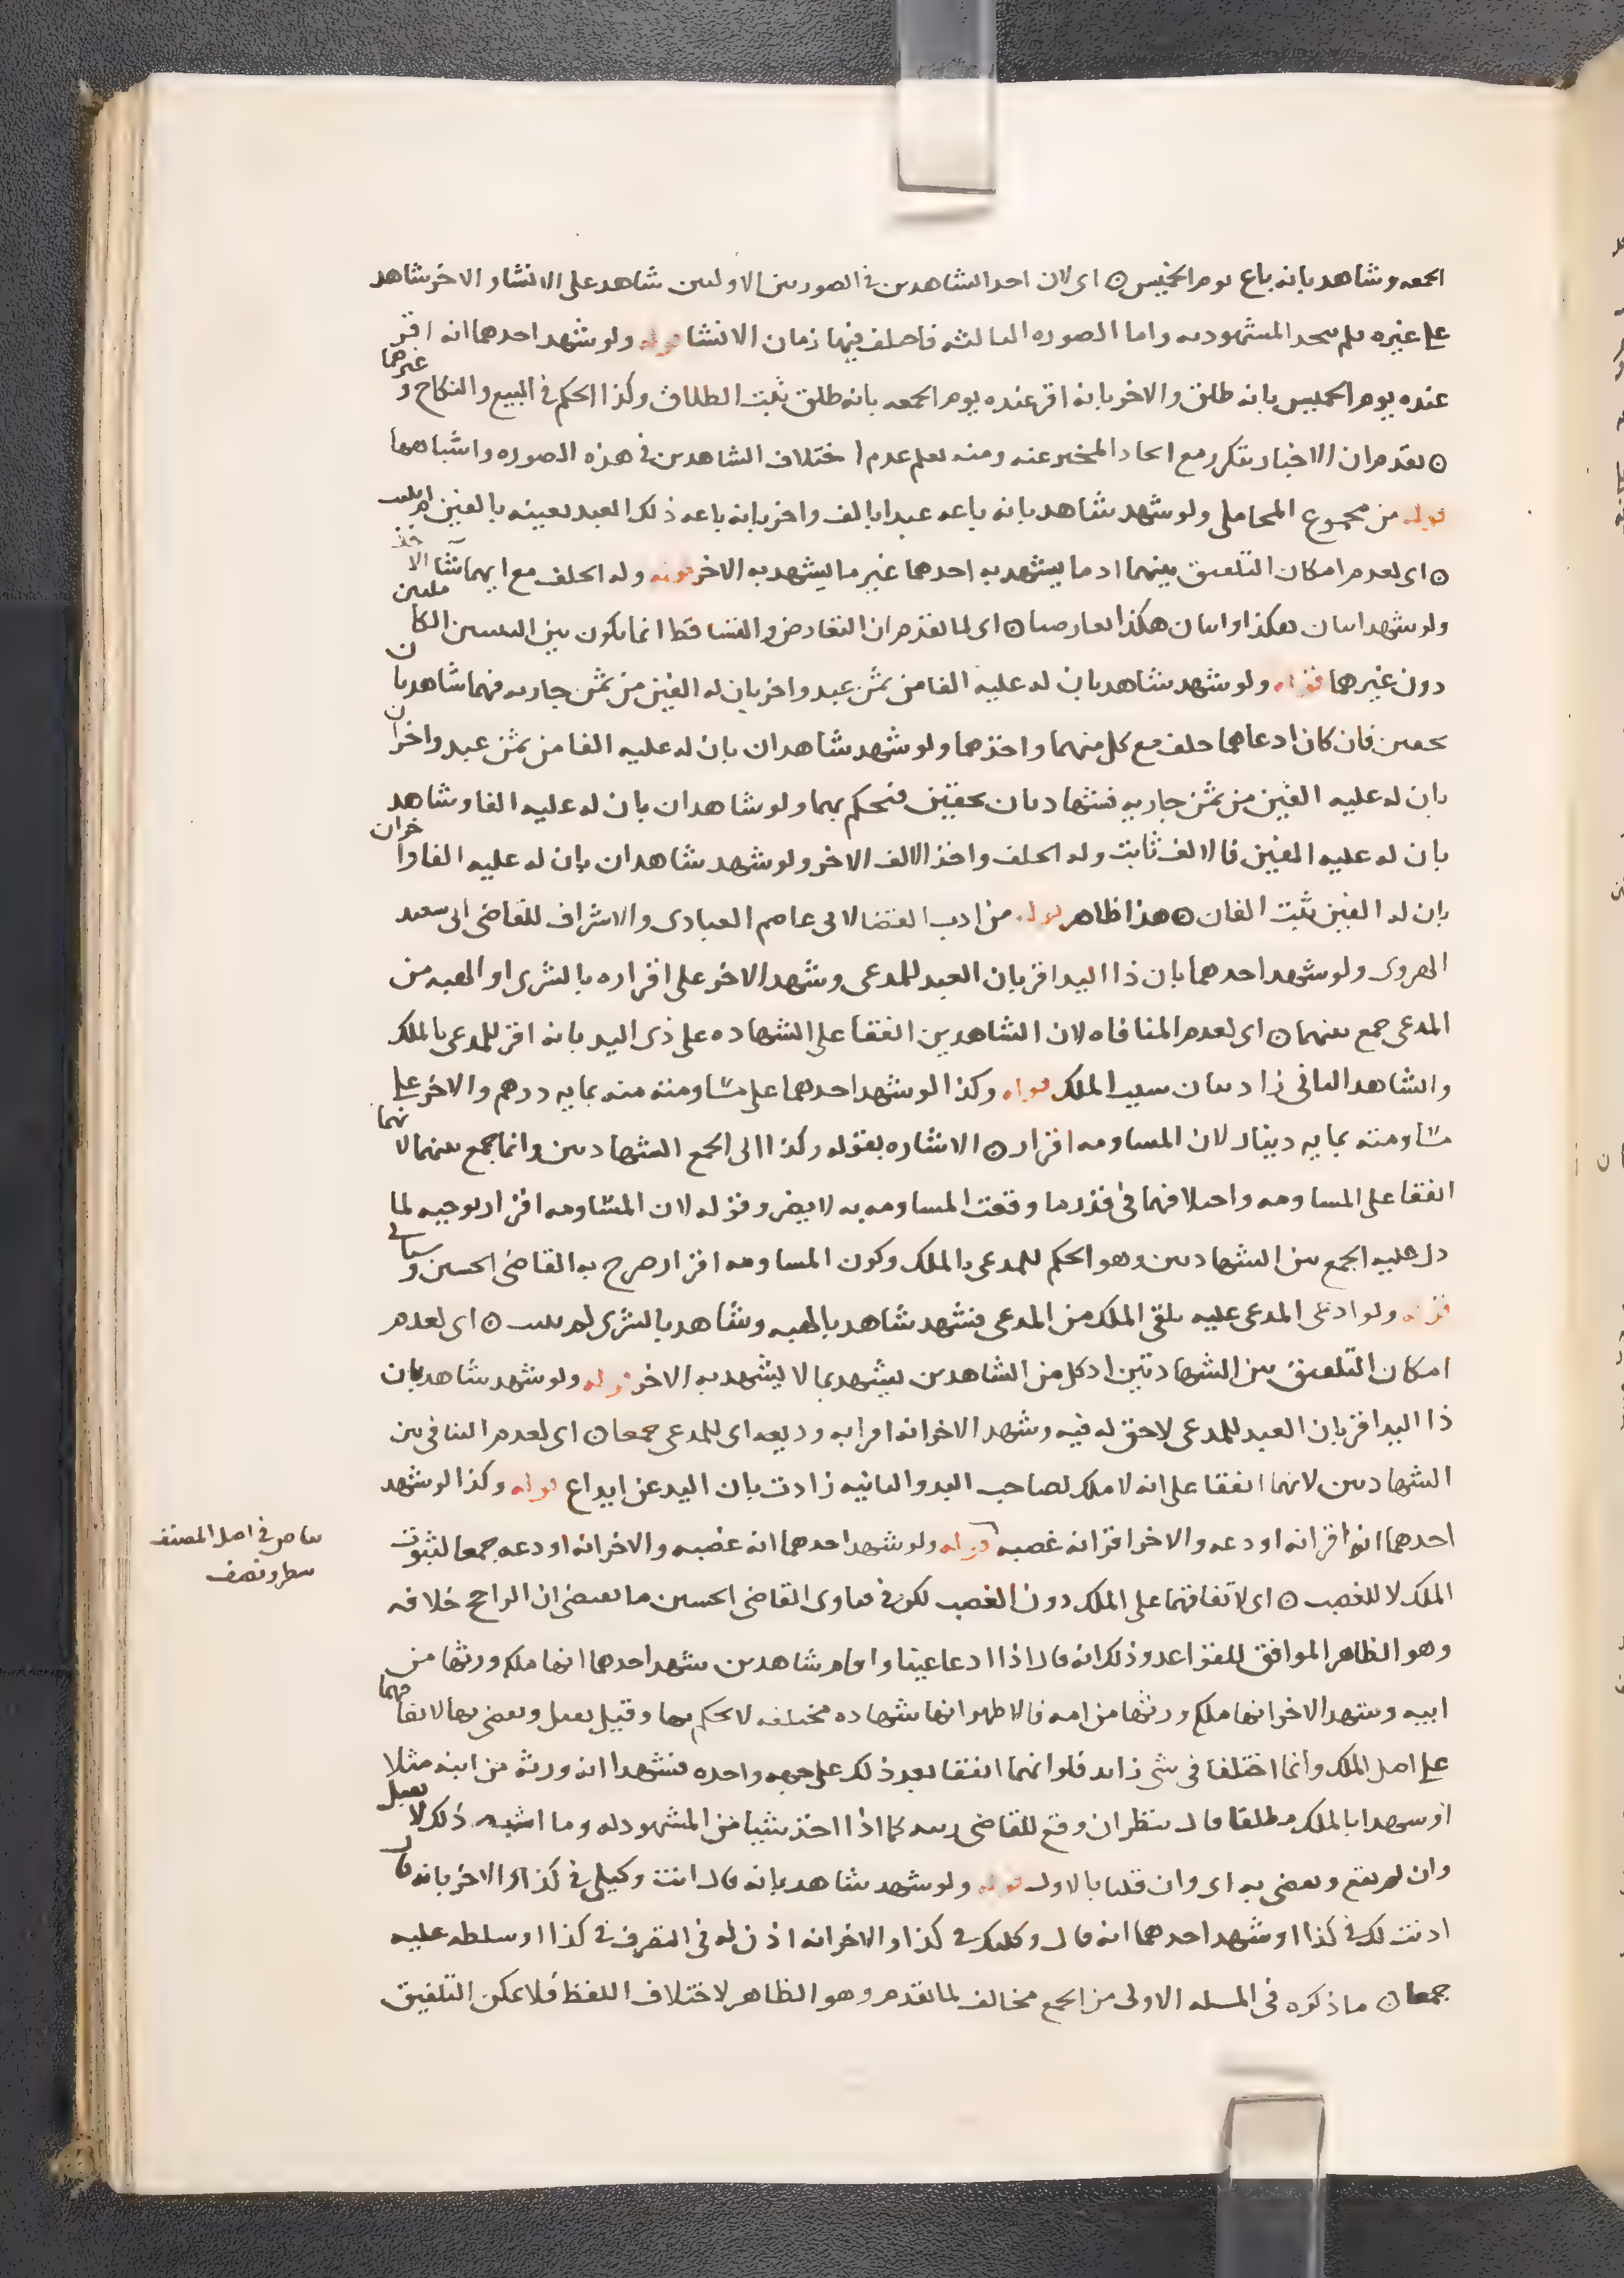 الجمعه وشاهد بانه باع يوم الخميس ⊙ اى لان احد الشاهدين فى الصورتين الاوليين شاهد على الانشا والاخر شاهد
على غيره فلم يتحد المشهود به واما الصوره الثالثه فاختلف فيها زمان الانشا قوله ولو شهد احدهما انه اقر
عنده يوم الخميس بانه طلق والاخر بانه اقر عنده يوم الجمعه بانه طلق ثبت الطلاق وكذا الحكم فى البيع والنكاح وغيرهما
⊙ تقدم ان الاخبار يتكرر مع اتحاد المخبر عنه ومنه يعلم عدم اختلاف الشاهدين فى هذه الصوره واشباهها
قوله من مجموع المحاملى ولو شهد شاهد بانه باعه عبدا بالف واخر بانه باعه ذلك العبد بعينه بالفين لم يثبت
⊙ اى لعدم امكان التلفيق بينهما اذ ما يشهد به احدهما غير ما يشهد به الاخر قوله وله الحلف مع ايهما شا الاخذ
ولو شهد اثنان هكذا واثنان هكذا تعارضتا ⊙ اى لما تقدم ان التعارض والتساقط انما يكون بين البينتين الكاملتين
دون غيرهما قوله ولو شهد شاهد بان له عليه الفا من ثمن عبد واخر بان له الفين من ثمن جاريه فهما شاهدان
بحقين فان كان ادعاهما حلف مع كل منهما واخذهما ولو شهد شاهدان بان له عليه الفا من ثمن عبد واخران
بان له عليه الفين من ثمن جاريه فشهادتان بحقين فنحكم بهما ولو شاهدان بان له عليه الفا وشاهد
بان له عليه الفين فالالف ثابت وله الحلف واخذ الالف الاخر ولو شهد شاهدان بان له عليه الفا واخران
بان له الفين ثبت الفان ⊙ هذا ظاهر قوله من ادب القضا لابى عاصم العبادى والاشراف للقاضى ابى سعيد
الهروى ولو شهد احدهما بان ذا اليد اقر بان العبد للمدعى وشهد الاخر على اقراره بالشرى او الهبه من
المدعى جمع بينهما ⊙ اى لعدم المنافاه لان الشاهدين اتفقا على الشهاده على ذى اليد بانه اقر للمدعى بالملك
والشاهد الثانى زاد بيان سبب الملك قوله وكذا لو شهد احدهما على مساومته منه بمايه درهم والاخر على
مساومته بمايه دينار لان المساومه اقرار ⊙ الاشاره بقوله وكذا الى الجمع الشهادتين وانما جمع بينهما لانهما
اتفقا على المساومه واختلافهما فى قدر ما وقعت المساومه به لا يضر وقوله لان المساومه اقرار توجيه لما
دل عليه الجمع بين الشهادتين وهو الحكم للمدعى بالملك وكون المساومه اقرار صرح به القاضى الحسين وسياتى
قوله ولو ادعى المدعى عليه تلقى الملك من المدعى فشهد شاهد بالهبه وشاهد بالشرى لم يثبت ⊙ اى لعدم
امكان التلفيق بين الشهادتين اذ كل من الشاهدين يشهد بما لا يشهد به الاخر قوله ولو شهد شاهد بان
ذا اليد اقر بان العبد للمدعى لا حق له فيه وشهد الاخر انه اقر انه وديعه اى للمدعى جمعا ⊙ اى لعدم التنافى بين
الشهادتين لانهما اتفقا على انه لا ملك لصاحب اليد والثانيه زادت بان اليد عن ايداع قوله وكذا لو شهد
احدهما انه اقر انه اودعه والاخر اقر انه غصبه قوله ولو شهد احدهما انه غصبه والاخر انه اودعه جمعا لثبوت
الملك لا للغصب ⊙ اى لاتفاقهما على الملك دون الغصب لكن فى فتاوى القاضى الحسين ما يقتضى ان الراجح خلافه
وهو الظاهر الموافق للقواعد وذلك انه قال اذا ادعا عينا واقام شاهدين شهد احدهما انها ملكه ورثها من
ابيه وشهد الاخر انها ملكه ورثها من امه فالاظهر انها شهاده مختلفه لا يحكم بها وقيل يقبل ويقضى بها لاتفاقهما
على اصل الملك وانما اختلفا فى شى زايد فلو انهما اتفقا بعد ذلك على جهه واحده فشهدا انه ورثه من ابيه مثلا
او شهدا بالملك مطلقا قال ينظر ان وقع للقاضى ريبه كما اذا اخذ شيئا من المشهود له وما اشبه ذلك لا يقبل
وان لم يقع ويقضى به اى وان قلنا بالاول قوله ولو شهد شاهد بانه قال انت وكيلى فى كذا والاخر بانه قال
اذنت لك فى كذا او شهد احدهما انه قال وكلتك فى كذا والاخر انه اذن له فى التصرف فى كذا او سلطه عليه
جمعا ⊙ ما ذكره فى المسله الاولى من الجمع مخالف لما تقدم وهو الظاهر لاختلاف اللفظ فلا يمكن التلفيق
بياض فى اصل المصنف
سطر ونصف